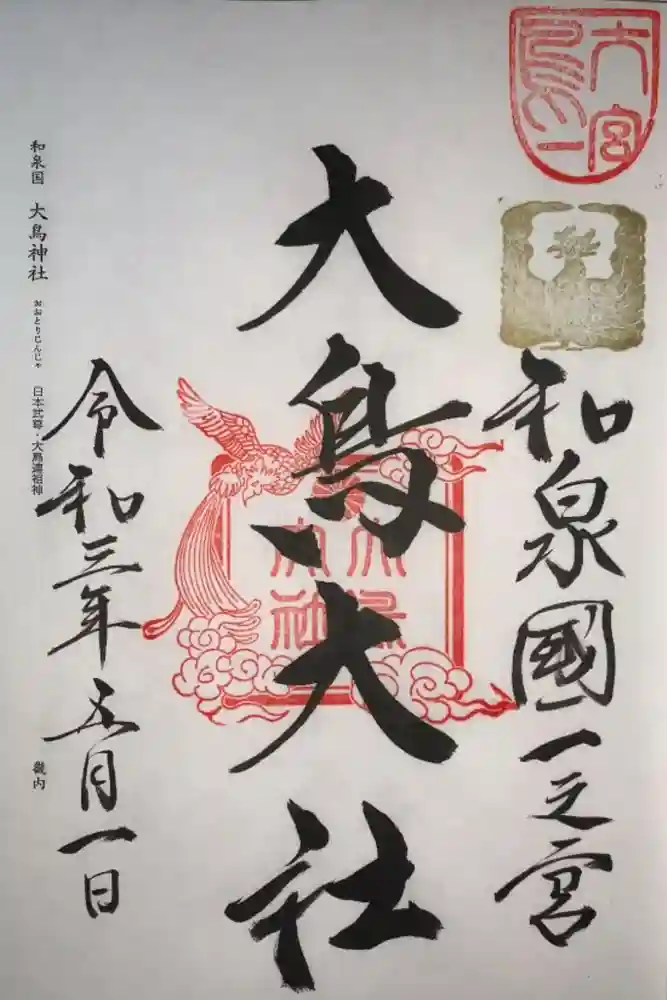 大鳥
一宮
和泉國一之宮
大鳥大社
大鳥
大社
令和三年五月一日
和泉国 大鳥神社 おおとりじんじゃ 日本武尊・大鳥連祖神
畿内